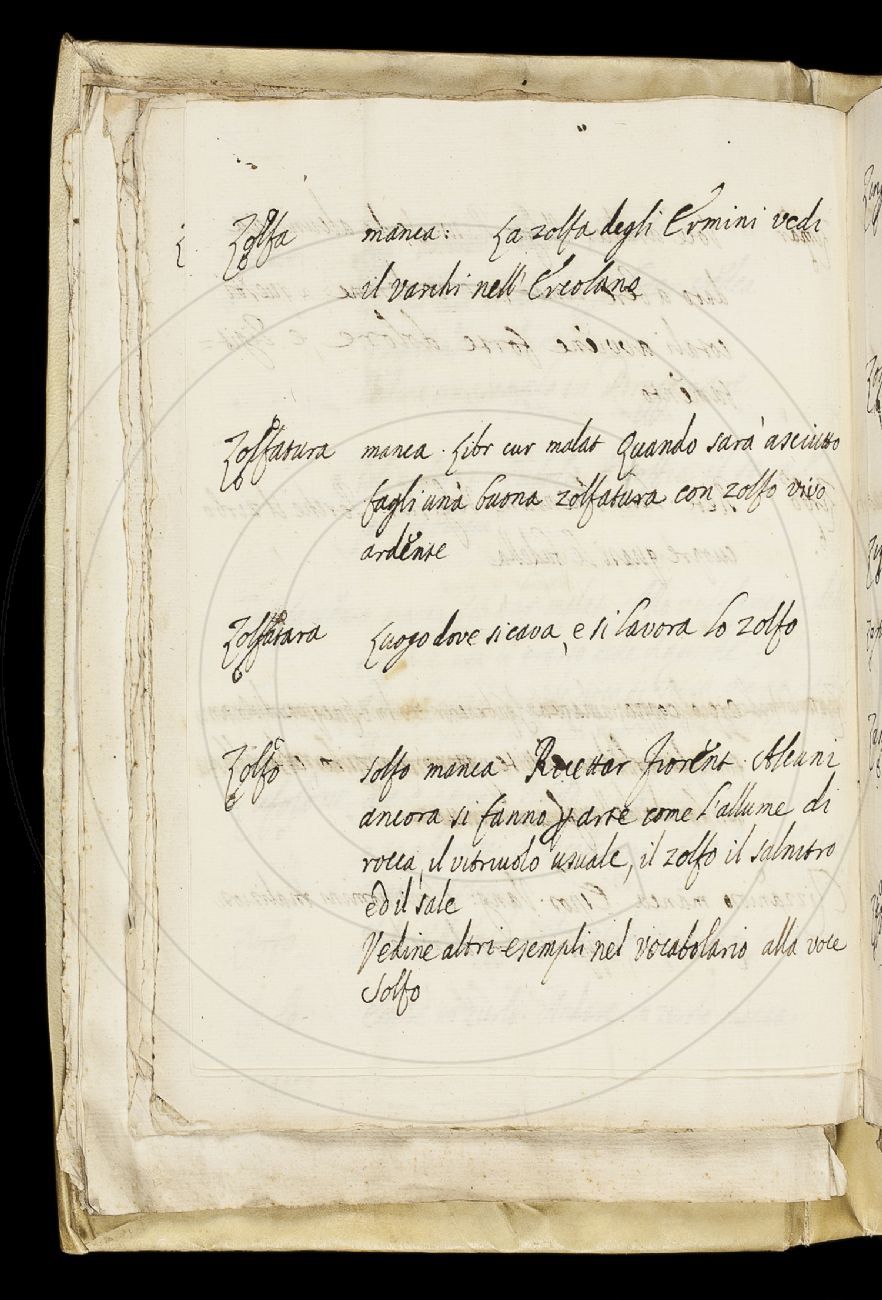 Zolfa manca: La zolfa degli Ermini vedi
il varchi nell' Ercolano
Zolfatura manca. Libr cur malat Quando sarà asciutto
fagli una buona zolfatura con zolfo vivo
ardente
Zolfatara Luogo dove si cava, e si lavora lo zolfo
Zolfo solfo manca Ricettar Fiorent Alcuni
ancora si fanno p arte come l'allume di
rocca, il vitriuolo usuale, il zolfo il salnitro
ed il sale
Vedine altri esempli nel vocabolario alla voce
Solfo